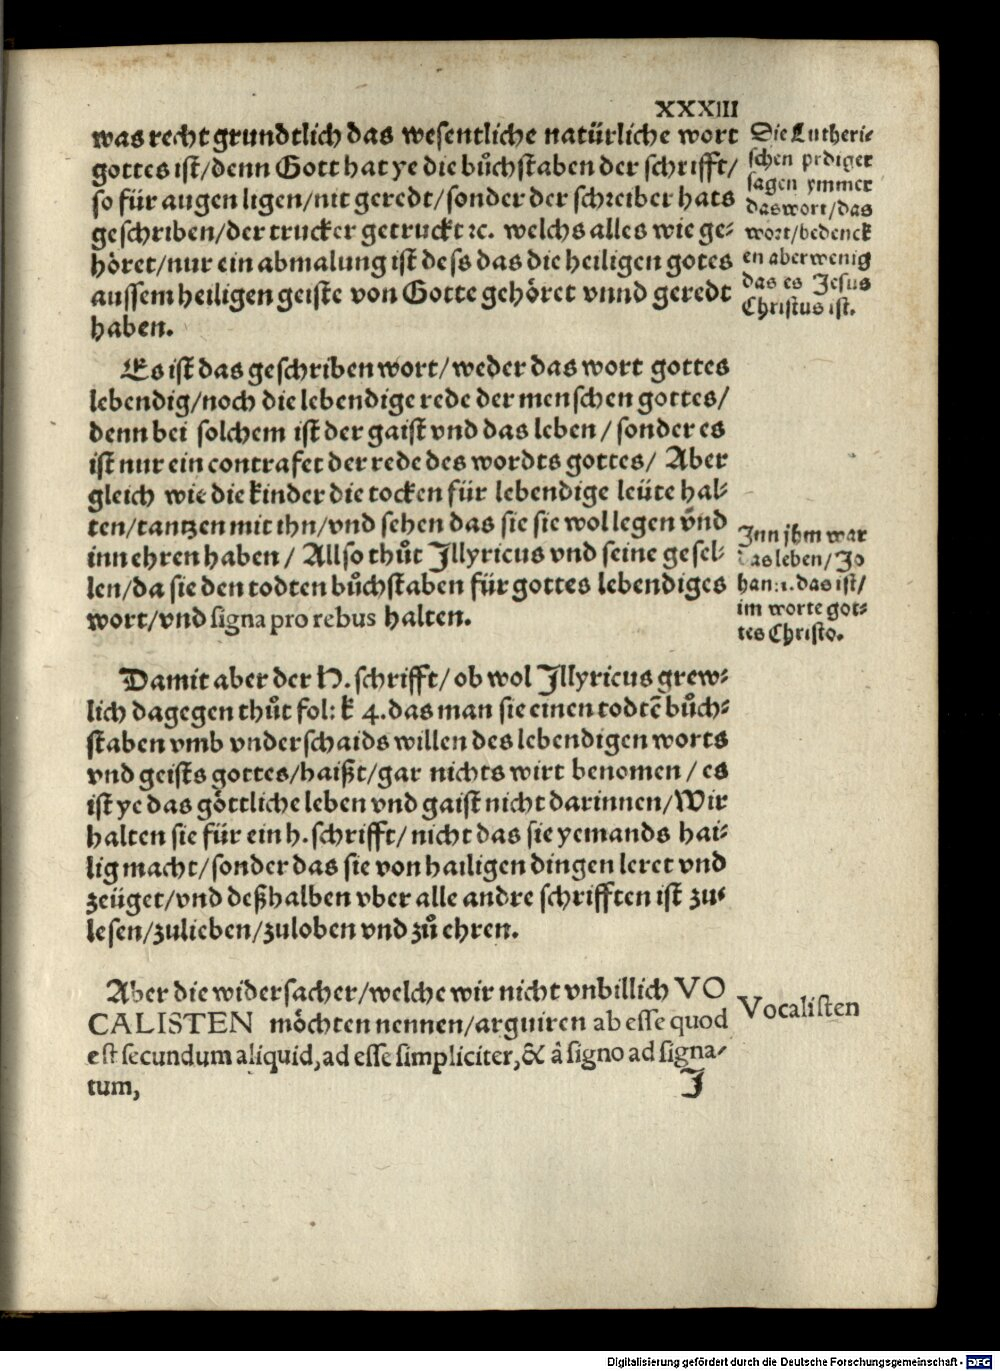 XXXIII
was recht grundtlich das wesentliche natürliche wort
gottes ist/denn Gott hat ye die bůchstaben der schrifft/
so für augen ligen/nit geredt/sonder der schreiber hats
geschriben/der trucker getruckt ꝛc. welchs alles wie ge⸗
höret/nur ein abmalung ist dess das die heiligen gotes
aussem heiligen geiste von Gotte gehöret vnnd geredt
haben.
Die Lutheri⸗
schen prdiger
sagen ymmer
das wort/das
wort/bedenck
en aber wenig
das es Jesus
Christus ist.
Es ist das geschriben wort/weder das wort gottes
lebendig/noch die lebendige rede der menschen gottes/
denn bei solchem ist der gaist vnd das leben/sonder es
ist nur ein contrafet der rede des wordts gottes/ Aber
gleich wie die kinder die tocken für lebendige leüte hal⸗
ten/tantzen mit ihn/vnd sehen das sie sie wol legen vnd
inn ehren haben/ Allso thůt Jllyricus vnd seine gesel⸗
len/da sie den todten bůchstaben für gottes lebendiges
wort/vnd signa pro rebus halten.
Jnn jhm war
das leben/Jo
han:1. das ist/
im worte got⸗
tes Christo.
Damit aber der H. schrifft/ob wol Jllyricus grew⸗
lich dagegen thůt fol: k 4. das man sie einen todtē bůch⸗
staben vmb vnderschaids willen des lebendigen worts
vnd geists gottes/haißt/gar nichts wirt benomen/es
ist ye das göttliche leben vnd gaist nicht darinnen/Wir
halten sie für ein h. schrifft/nicht das sie yemands hai⸗
lig macht/sonder das sie von hailigen dingen leret vnd
zeüget/vnd deßhalben vber alle andre schrifften ist zu⸗
lesen/zulieben/zuloben vnd zů ehren.
Aber die widersacher/welche wir nicht vnbillich VO
CALISTEN möchten nennen/arguiren ab esse quod
est secundum aliquid, ad esse simpliciter, & â signo ad signa⸗
tum,
J
Vocalisten
Digitalisierung gefördert durch die Deutsche Forschungsgemeinschaft - DFG